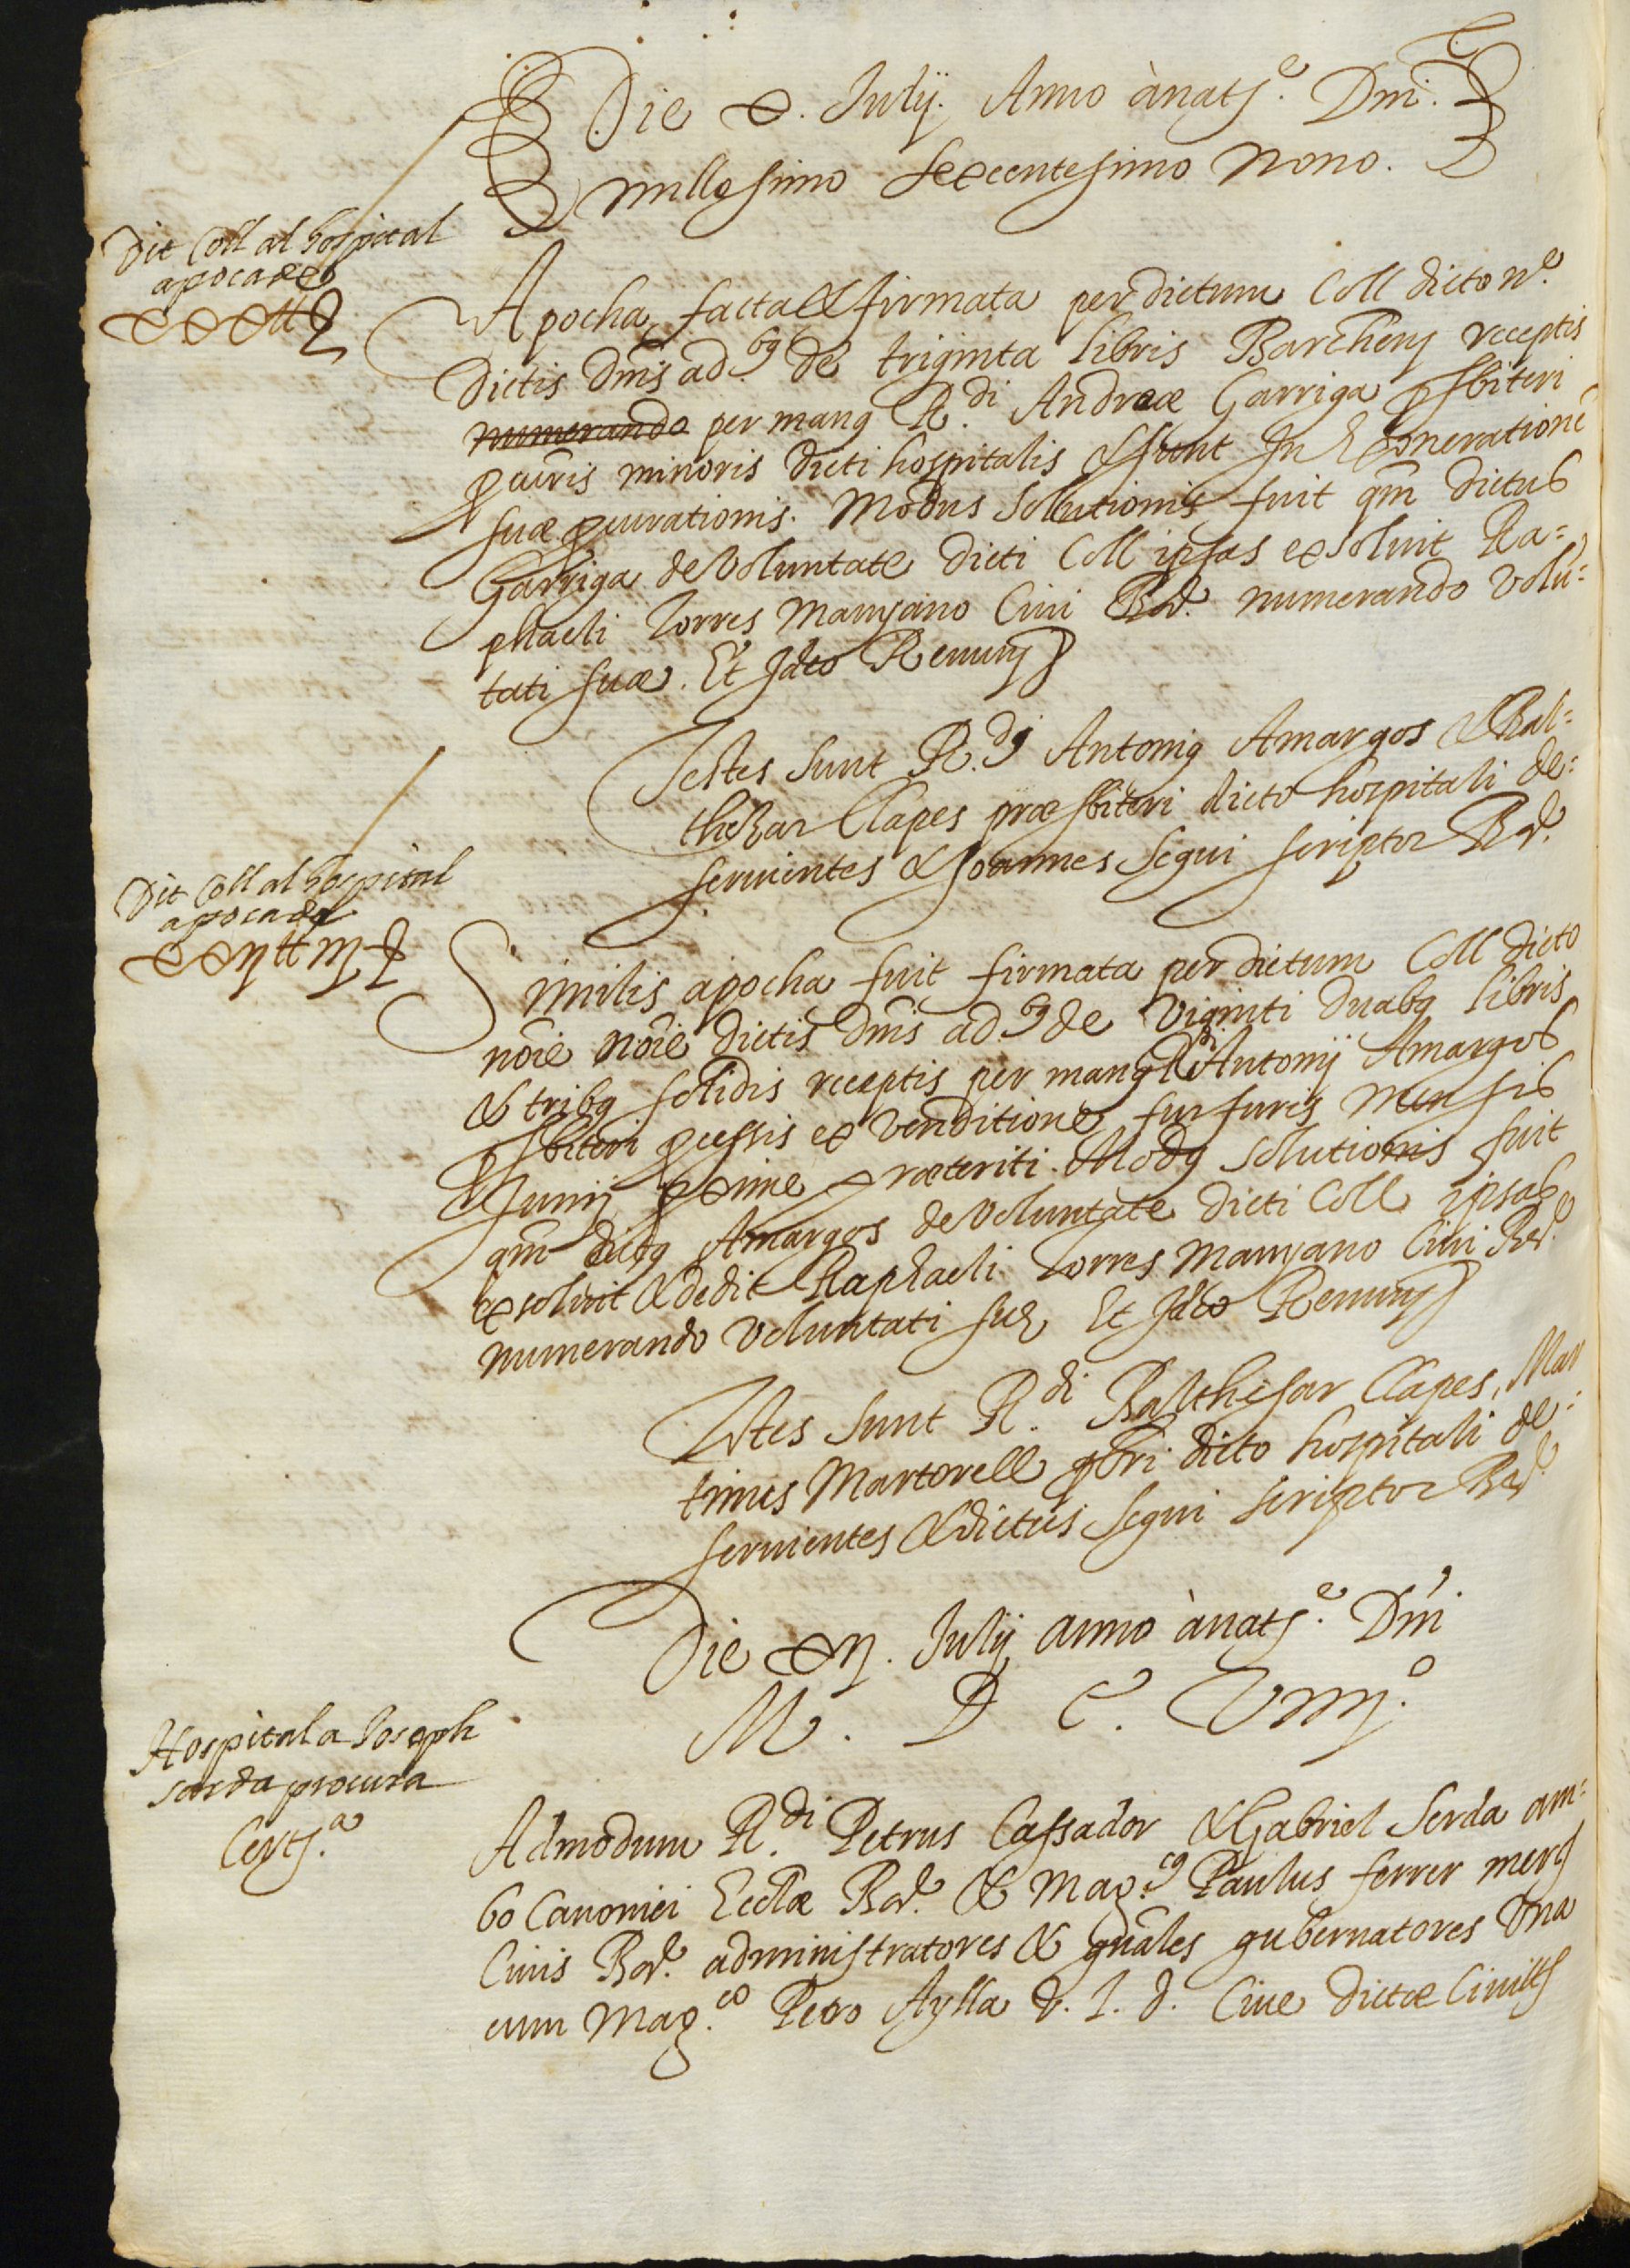 Die x. Julij. Anno à natte. Dni.
millesimo Sexcentesimo Nono.
Dit Coll al hospital
apoca de
xxx ll
Apocha facta & firmata per dictum Coll dicto ne.
Dictis Dnis adbus de triginta libris Barchen receptis
numerando per manus R.di Andreæ Garriga psbiteri
pcuris minoris dicti hospitalis & sunt In exonerationē
suæ pcurationis. Modus Solutionis fuit qm̄ dictus
Garriga de Voluntate dicti Coll ipsas exsoluit Ra=
phaeli Torres Manyano Ciui Bar. numerando Volū=
tati suæ. Et Ideo Renun
Testes sunt R.di Antonius Amargos & Bal=
thezar Clapes præsbiteri dicto hospitali de=
seruientes & Joannes Segui scriptor Bar.
Dit Coll al hospital
apoca de
xxij ll iij s
Similis apocha fuit firmata per dictum Coll dicto
nōie nōie dictis dnis adbus de Viginti duabus libris
& tribus solidis receptis per manus R.di Antonij Amargos
psbiteri pcessis ex venditione furfuris mensis
Junij pxime præteriti. Modus solutionis fuit
qm̄ dictus Amargos de Voluntate dicti Coll ipsas
exsoluit & dedit Raphaeli Torres Manyano Ciui Bar.
numerando Voluntati suę Et Ideo Renun
Testes sunt R.di Balthesar Clapes, Mar
tinus Martorell pbri dicto hospitali de=
seruientes & dictus Segui scriptor Bar
Die xij. Julij anno à natte. Dni
M. D C. Viiij.o
Hospital a Joseph
serda procura
Certs.a
Admodum R.di Petrus Cassador & Gabriel Serda am=
bo Canonici Ecclæ Bar. & Mag.cus Paulus ferrer mers
Ciuis Bar. administratores & gnāles gubernatores Vna
cum Mag.co Petro Aylla V. I. d. Ciue dictæ Ciuitts